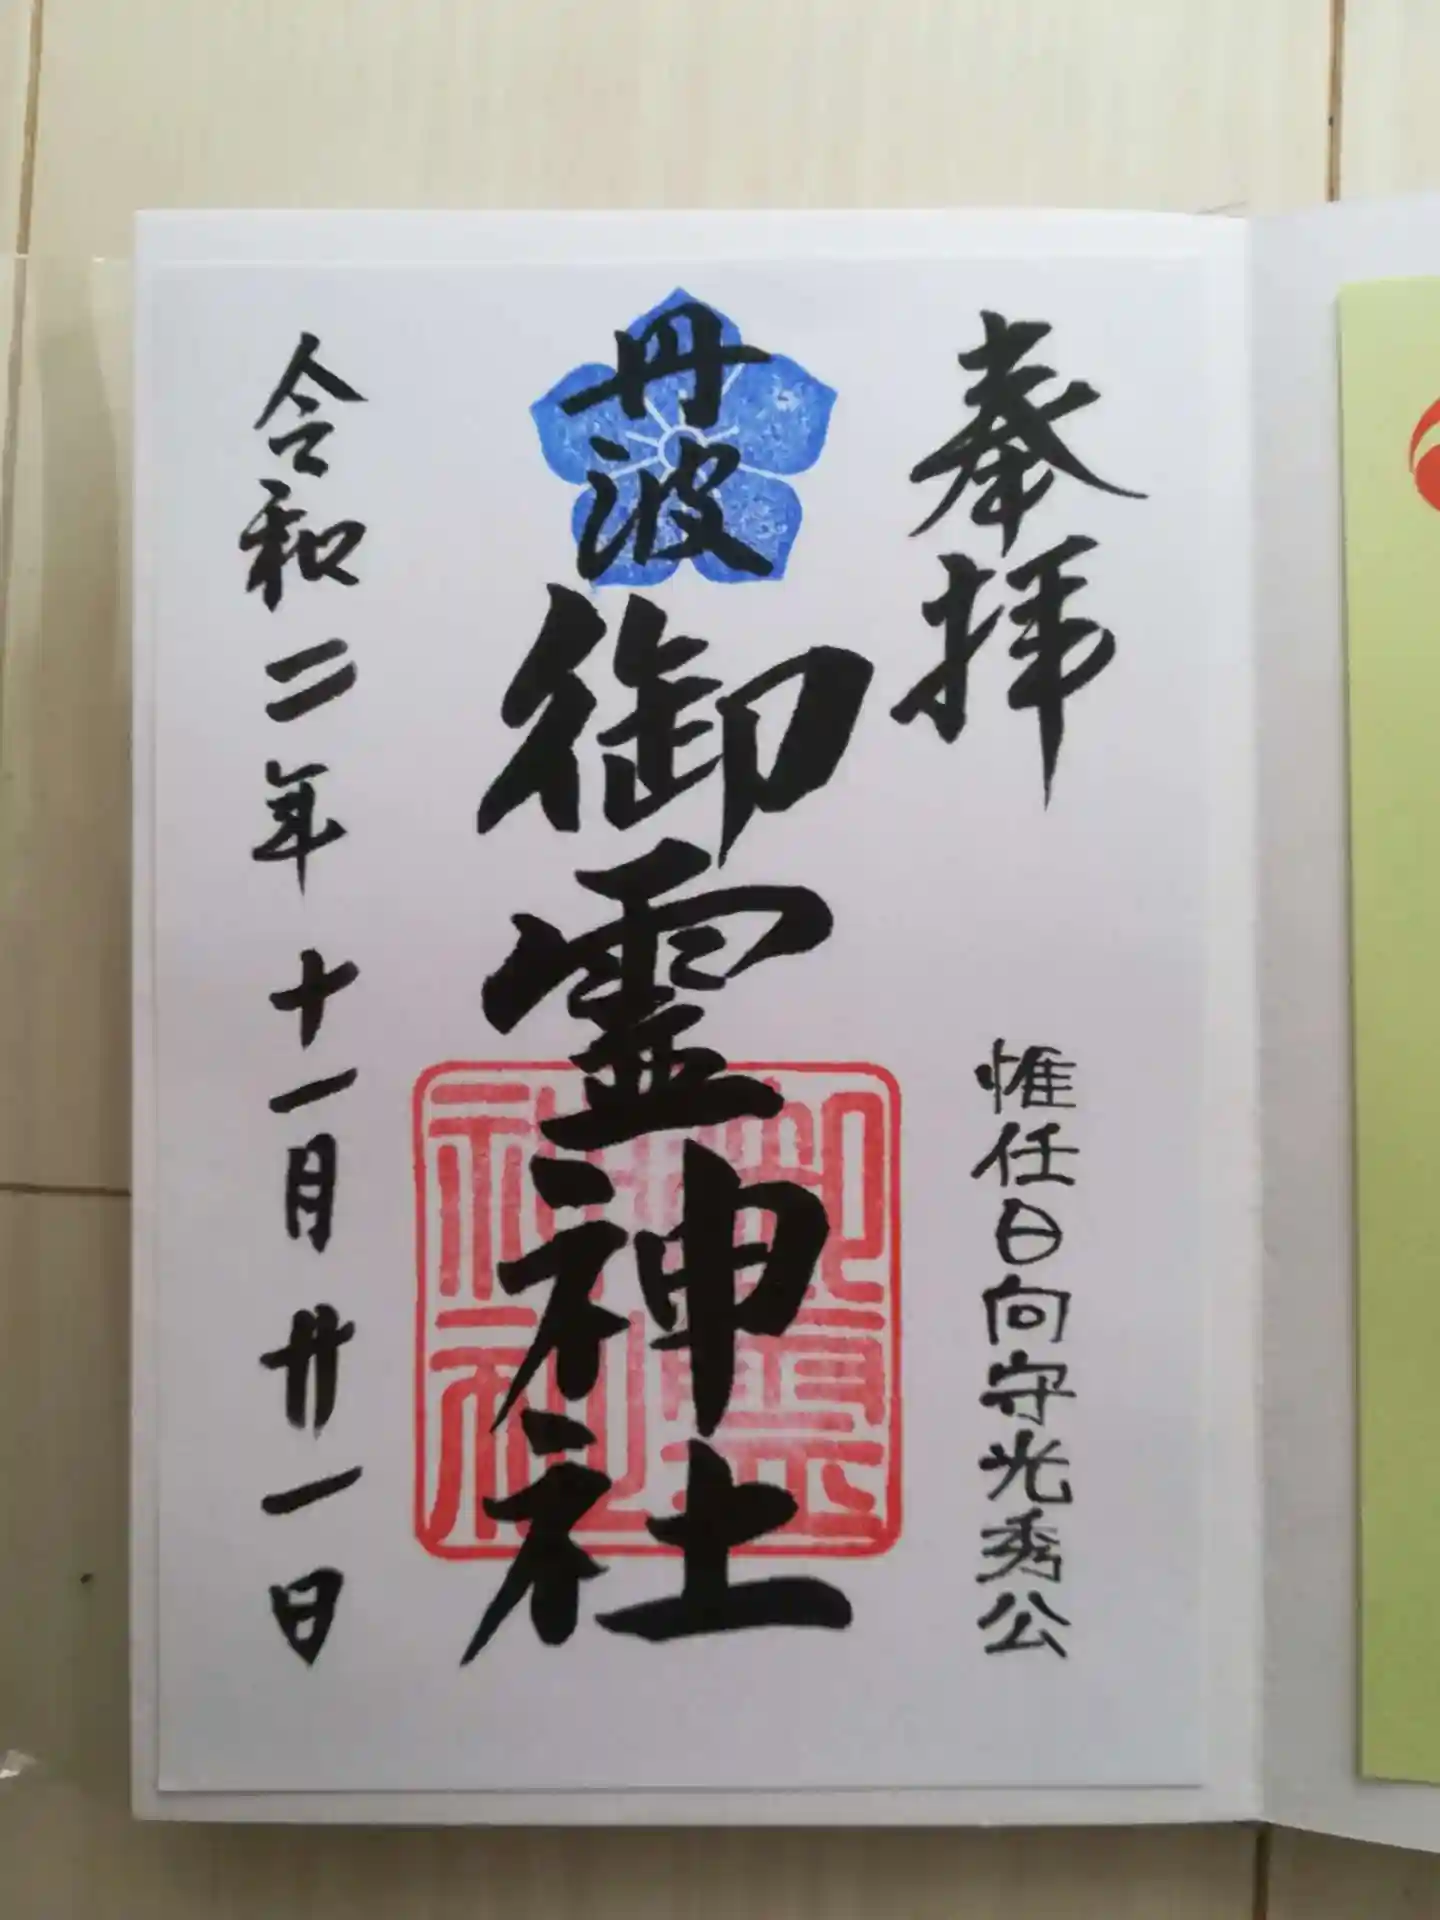 奉拝
惟任日向守光秀公
丹波
御霊神社
令和二年十一月廿一日
御霊
神社